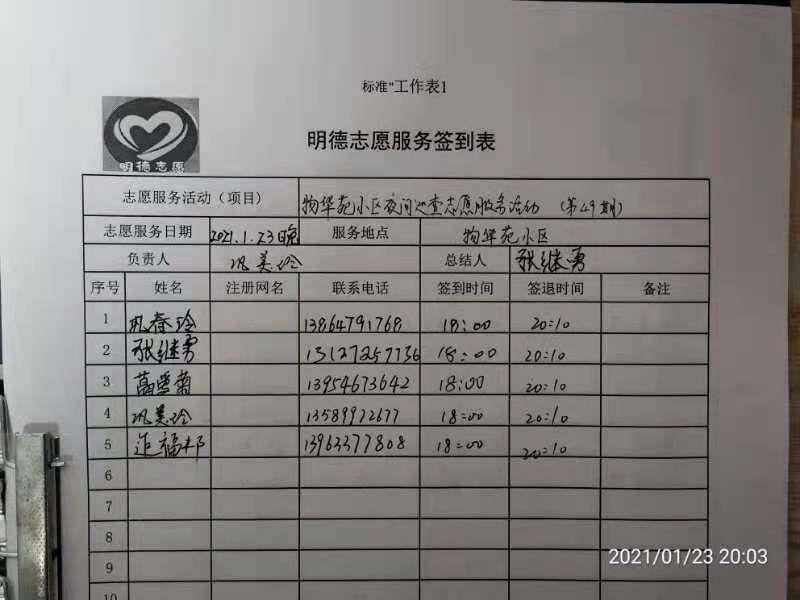 标准"工作表1
明德志愿
明德志愿服务签到表
志愿服务活动（项目） 物华苑小区夜间巡查志愿服务活动 （第49期）
志愿服务日期 2021.1.23晚 服务地点 物华苑小区
负责人 巩美玲 总结人 张继勇
序号 姓名 注册网名 联系电话 签到时间 签退时间 备注
1 巩春玲 13864791768 18:00 20:10
2 张继勇 18:00 20:10
3 13954673642 18:00 20:10
4 巩美玲 13589972677 18:00 20:10
5 13963377808 18:00 20:10
6
7
8
9
10
2021/01/23 20:03